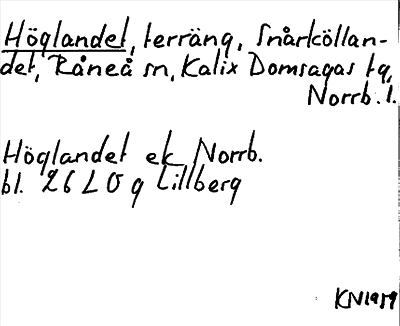 Höglandet, terräng, Snårköllan-
det, Råneå sn, Kalix Domsagas tg,
Norrb. l.
Höglandet ek Norrb.
bl. 26 L 0 g Lillberg
KN1959